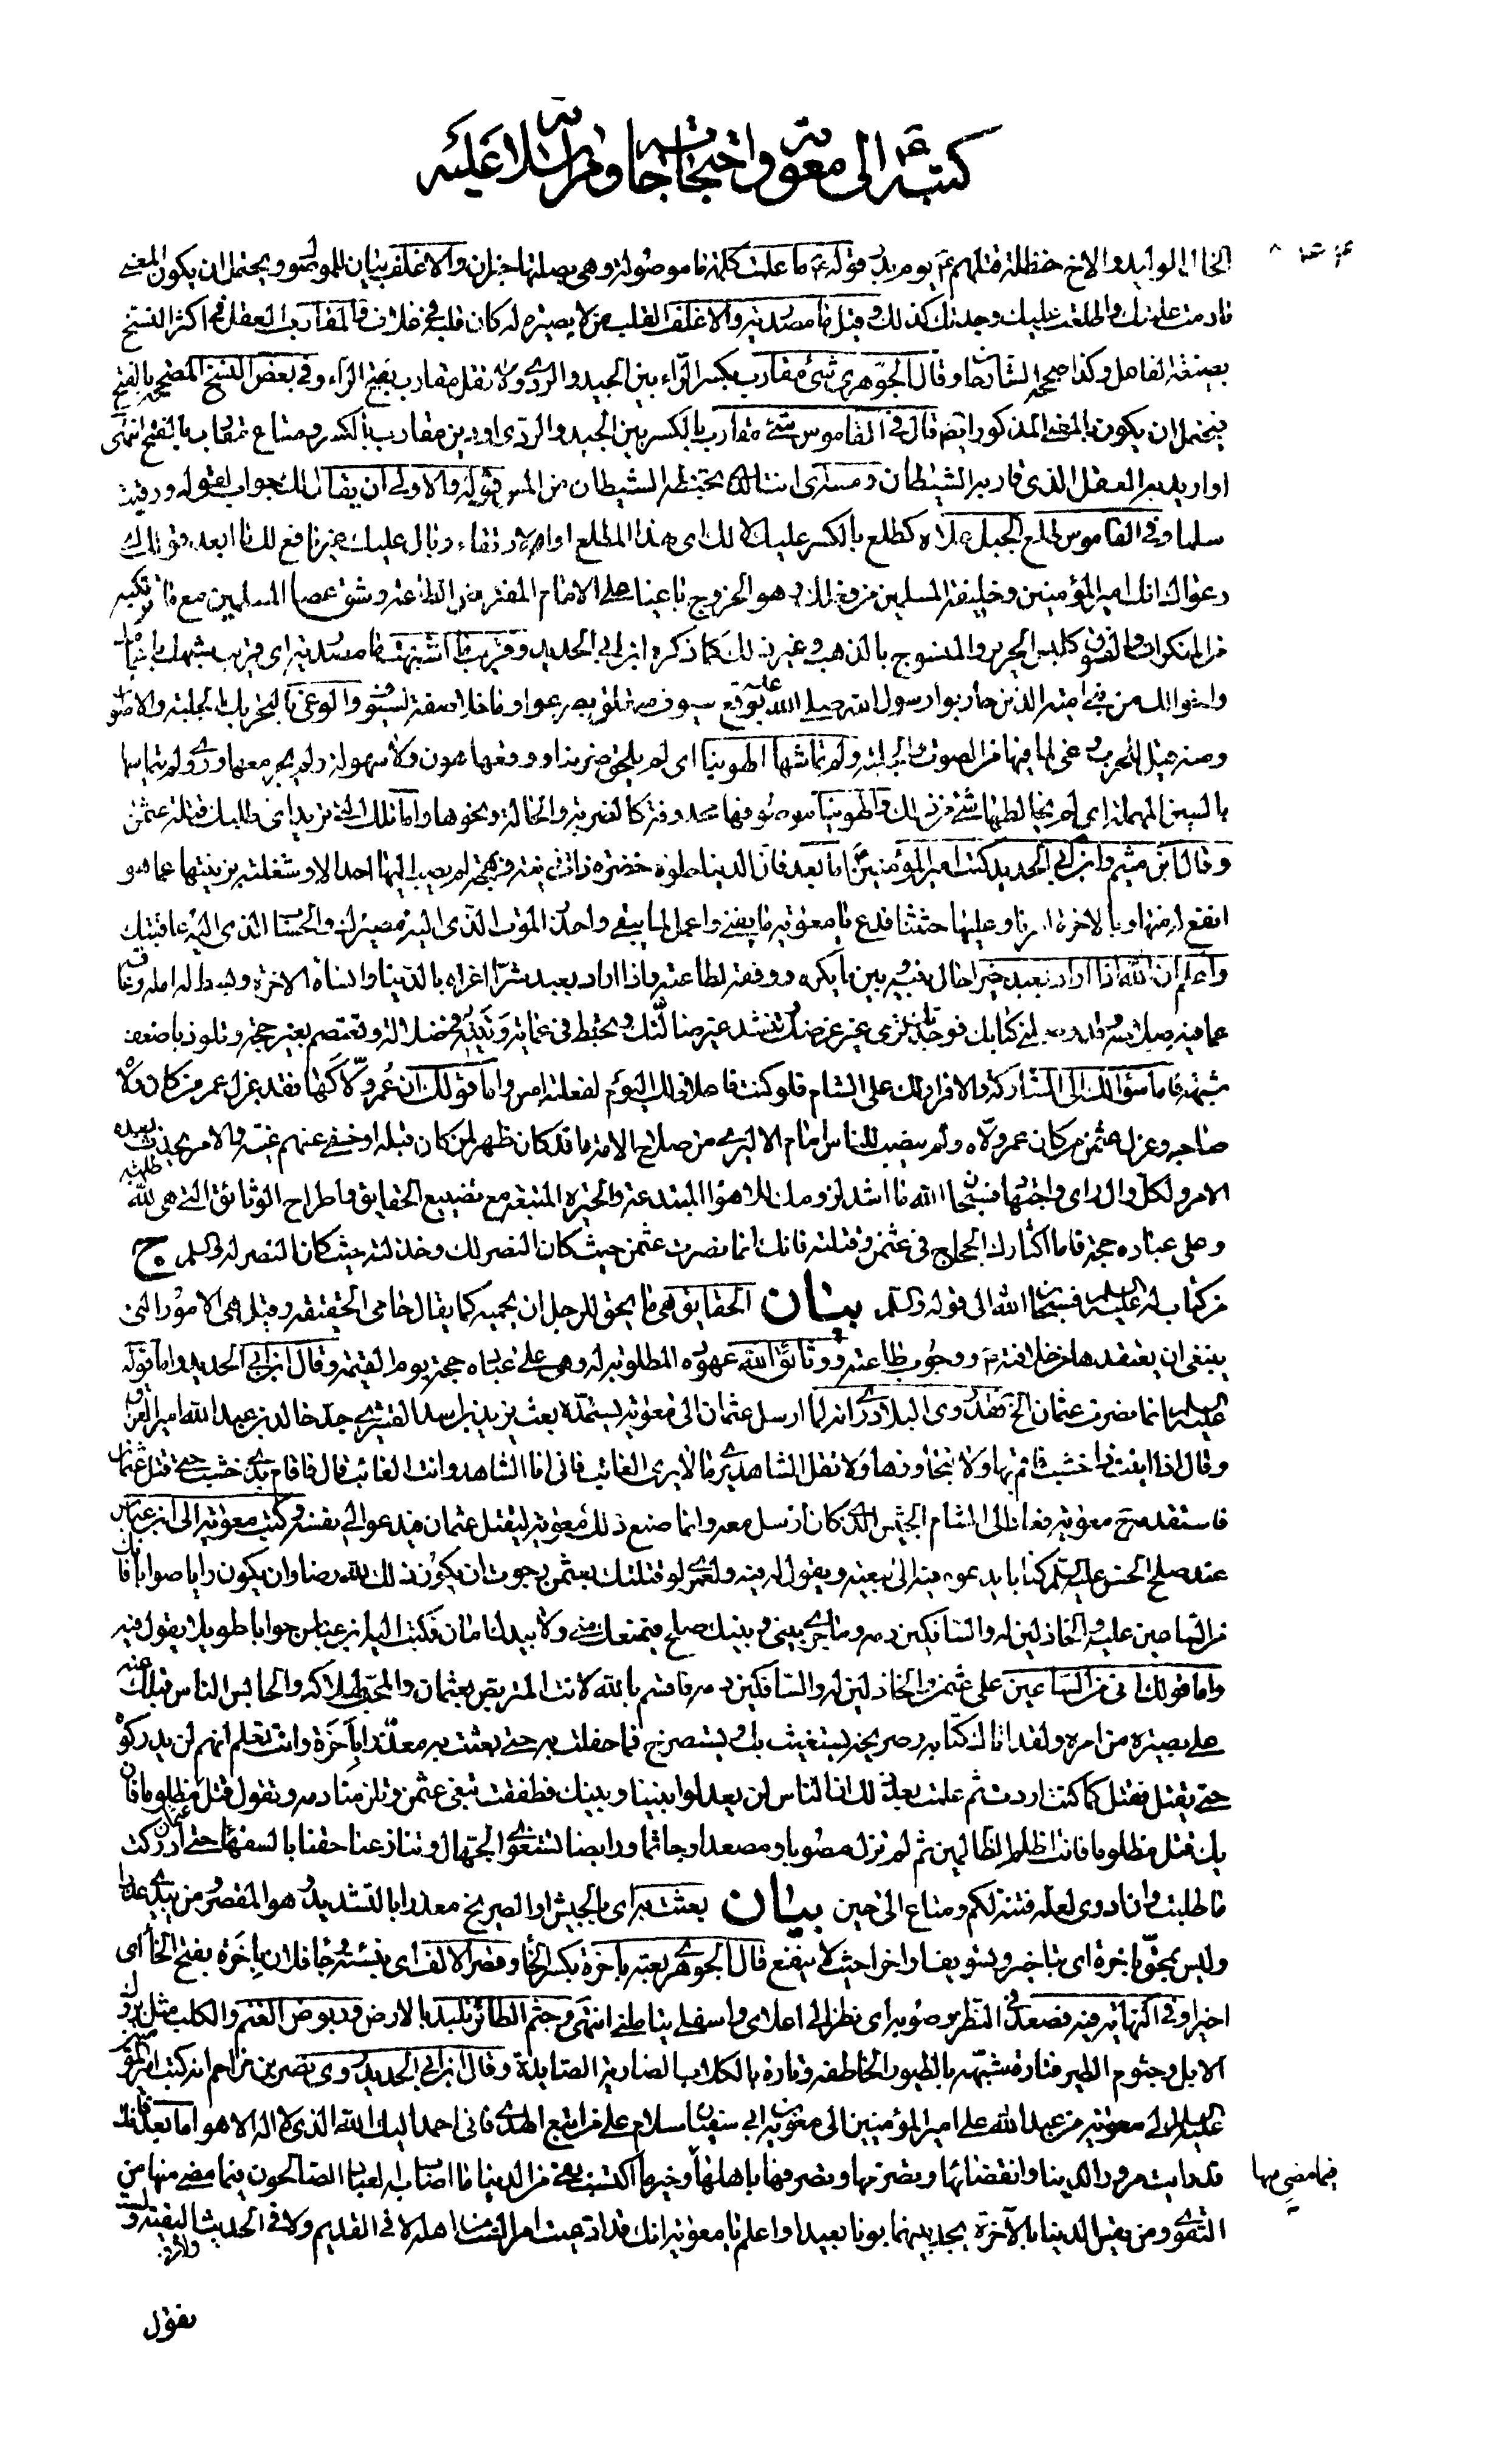 كتبه ع الى معوية واحتجاجاته ومراسلاته عليه
الخال الوليد والاخ حنظلة قتلهم ع يوم بدر قوله ع ما علمت كلمة ما موصولة وهي بصلتها خبر ان والاغلف بيان للموصول ويحتمل ان يكون المعنى
ما دمت علمتك واطلعت عليك وجدتك كذلك وقيل ما مصدرية والاغلف القلب من لا بصيرة له كان قلبه في غلاف والمقارب العقل في اكثر النسخ
بصيغة الفاعل وكذا صححه الشارحان وقال الجوهري شئ مقارب بكسر الراء بين الجيد والردي ولا تقل مقارب بفتح الراء وفي بعض النسخ المصححة بالفتح
فيحتمل ان يكون بالمعنى المذكور ايضا قال في القاموس شئ مقارب بالكسر بين الجيد والردي او دين مقارب بالكسر ومتاع مقارب بالفتح انتهى
او اريد به العقل الذي قاربه الشيطان ومسه اى انت الذي يتخبطه الشيطان من المس قوله والاولى ان يقال لك جواب لقوله ورقيت
سلما وفي القاموس طلع الجبل علاه كطلع بالكسر عليك لا لك اى هذا المطلع او الارتقاء وبال عليك غير نافع لك ما ابعد قولك
دعواك انك امير المؤمنين وخليفة المسلمين من فعلك وهو الخروج باغيا على الامام المفترض الطاعة وشق عصا المسلمين مع ما تركبه
من المنكرات والفسوق كلبس الحرير والمنسوج بالذهب وغير ذلك كما ذكره ابن ابي الحديد وقريب ما اشبهت ما مصدرية اى قريب شبهك باعمامك
واخوالك من بني امية الذين حاربوا رسول الله صلى الله عليه
وصفه قيل للحرب وغى لما فيها من الصوت والجلبة ولم تماشها الهوينا اى لم يلحق ضربنا ووقعها هون ولا سهولة ولم يجر معها وروي ولم تماسها
بالسين المهملة اى لم يخالطها شئ من ذلك والهوينا موصوفها محذوفة كالضربة والحالة ونحوها واما تلك التي تريد اى طلبك قتلة عثمن
وقال ابن ميثم وابن ابي الحديد كتب امير المؤمنين ع اما بعد فان الدنيا حلوة خضرة ذات زينة وبهجة لم يصب اليها احد الا وشغلته بزينتها عما هو
انفع له منها وبالاخرة امرنا وعليها حثثنا فدع يا معوية ما يفنى واعمل لما يبقى واحذر الموت الذي اليه مصيرك والحساب الذي اليه عاقبتك
واعلم ان الله اذا اراد بعبد خيرا حال بينه وبين ما يكره ووفقه لطاعته واذا اراد بعبد شرا اغراه بالدنيا وانساه الاخرة وبسط له امله وعاقه
عما فيه صلاحه وقد وصلني كتابك فوجدتك ترمي غير غرضك وتنشد غير ضالتك وتخبط في عماية وتتيه في ضلالة وتعتصم بغير حجة وتلوذ باضعف
شبهة فاما سؤالك الى المشاركة والاقرار لك على الشام فلو كنت فاعلا ذلك اليوم لفعلته امس واما قولك ان عمر ولاكها فقد عزل عمر من كان ولاه
صاحبه وعزل عثمن من كان عمر ولاه ولم ينصب للناس امام الا ليرى من صلاح الامة ما قد كان ظهر لمن كان قبله او خفى عنهم عيبه والامر يحدث بعده
الامر ولكل وال راى واجتهاد فسبحان الله ما اشد لزومك للاهواء المبتدعة والحيرة المتبعة مع تضييع الحقايق واطراح الوثائق التي هي لله طلبة
وعلى عباده حجة فاما اكثارك الحجاج في عثمن وقتلته فانك انما نصرت عثمن حيث كان النصر لك وخذلته حيث كان النصر له والسلم ج
من كتاب له عليه السلم فسبحان الله الى قوله والسلم بيان الحقايق هي ما يحق للرجل ان يحميه كما يقال حامي الحقيقة وقيل هي الامور التي
ينبغي ان يعتقدها من خلافته ع ووجوب طاعته ووثائق الله عهوده المطلوبة له وهي على عباده حجة يوم القيمة وقال ابن ابي الحديد واما قوله
عليه السلم انما نصرت عثمان الخ فقد روى البلاذري انه لما ارسل عثمان الى معوية يستمده بعث يزيد بن اسد القشيري جد خالد بن عبد الله امير العراق
وقال اذا اتيت ذا خشب فاقم بها ولا تتجاوزها ولا تقل الشاهد يرى ما لا يرى الغائب فاني انا الشاهد وانت الغائب قال فاقام بذي خشب حتى قتل عثمان
فاستقدمه ح معوية فعاد الى الشام بالجيش الذي كان ارسل معه وانما صنع ذلك معوية ليقتل عثمان فيدعو الى نفسه وكتب معوية الى ابن عباس
عند صلح الحسن عليه السلم كتابا يدعوه فيه الى بيعته ويقول له فيه ولعمري لو قتلتك بعثمن رجوت ان يكون ذلك لله رضا وان يكون رايا صوابا فانك
من الساعين عليه والخاذلين له والسافكين دمه وما جرى بيني وبينك صلح فيمنعك مني ولا بيدك امان فكتب اليه ابن عباس جوابا طويلا يقول فيه
واما قولك اني من الساعين على عثمن والخاذلين له والسافكين دمه فاقسم بالله لانت المتربص بعثمان والمحب لهلاكه والحابس الناس قبلك عنه
على بصيرة من امره ولقد اتاك كتابه وصريخه يستغيث بك ويستصرخ فما حفلت به حتى بعثت به معذرا باخرة وانت تعلم انهم لن يدركوه
حتى يقتل فقتل كما كنت اردت ثم علمت بعد ذلك ان الناس لن يعدلوا بيننا وبينك فطفقت تبغي عثمن وتلزمنا دمه وتقول قتل مظلوما فان
يك قتل مظلوما فانت اظلم الظالمين ثم لم تزل مصوبا ومصعدا وجاثما ورابضا تستغوي الجهال وتنازعنا حقنا بالسفهاء حتى ادركت
ما طلبت وان ادري لعله فتنة لكم ومتاع الى حين بيان بعثت به اى بالجيش او الصريخ معذرا بالتشديد هو المقصر من يبدي عذرا
وليس بمحق باخرة اى بتاخير وتسويف او اخرا حيث لا ينفع قال الجوهري بعته باخرة بكسر الخاء وقصر الالف اى بنسئة وجاء فلان باخرة بفتح الخاء اى
اخيرا وفي النهاية فيه فصعد في النظر وصوبه اى نظر الى اعلاى واسفلى يتاملني انتهى وجثم الطائر تلبد بالارض وربوض الغنم والكلب مثل بروك
الابل وجثوم الطير فتارة شبهه بالطيور الخاطفة وتارة بالكلاب الضارية الصايدة وقال ابن ابي الحديد روى نصر بن مزاحم انه كتب امير المؤمنين
عليه السلم الى معوية من عبد الله على امير المؤمنين الى معوية بن ابي سفيان سلام على من اتبع الهدى فاني احمد اليك الله الذي لا اله الا هو اما بعد فانك
قد رايت مرور الدنيا وانقضائها وتصرمها وتصرفها باهلها وخير ما اكتسبت من الدنيا ما اصاب العباد الصالحون فيما مضى منها من
التقوى ومن يقس الدنيا بالآخرة يجد بينهما بونا بعيدا واعلم يا معوية انك قد ادعيت امرا لست من اهله لا في القديم ولا في الحديث
فيما مضى منها
تقول